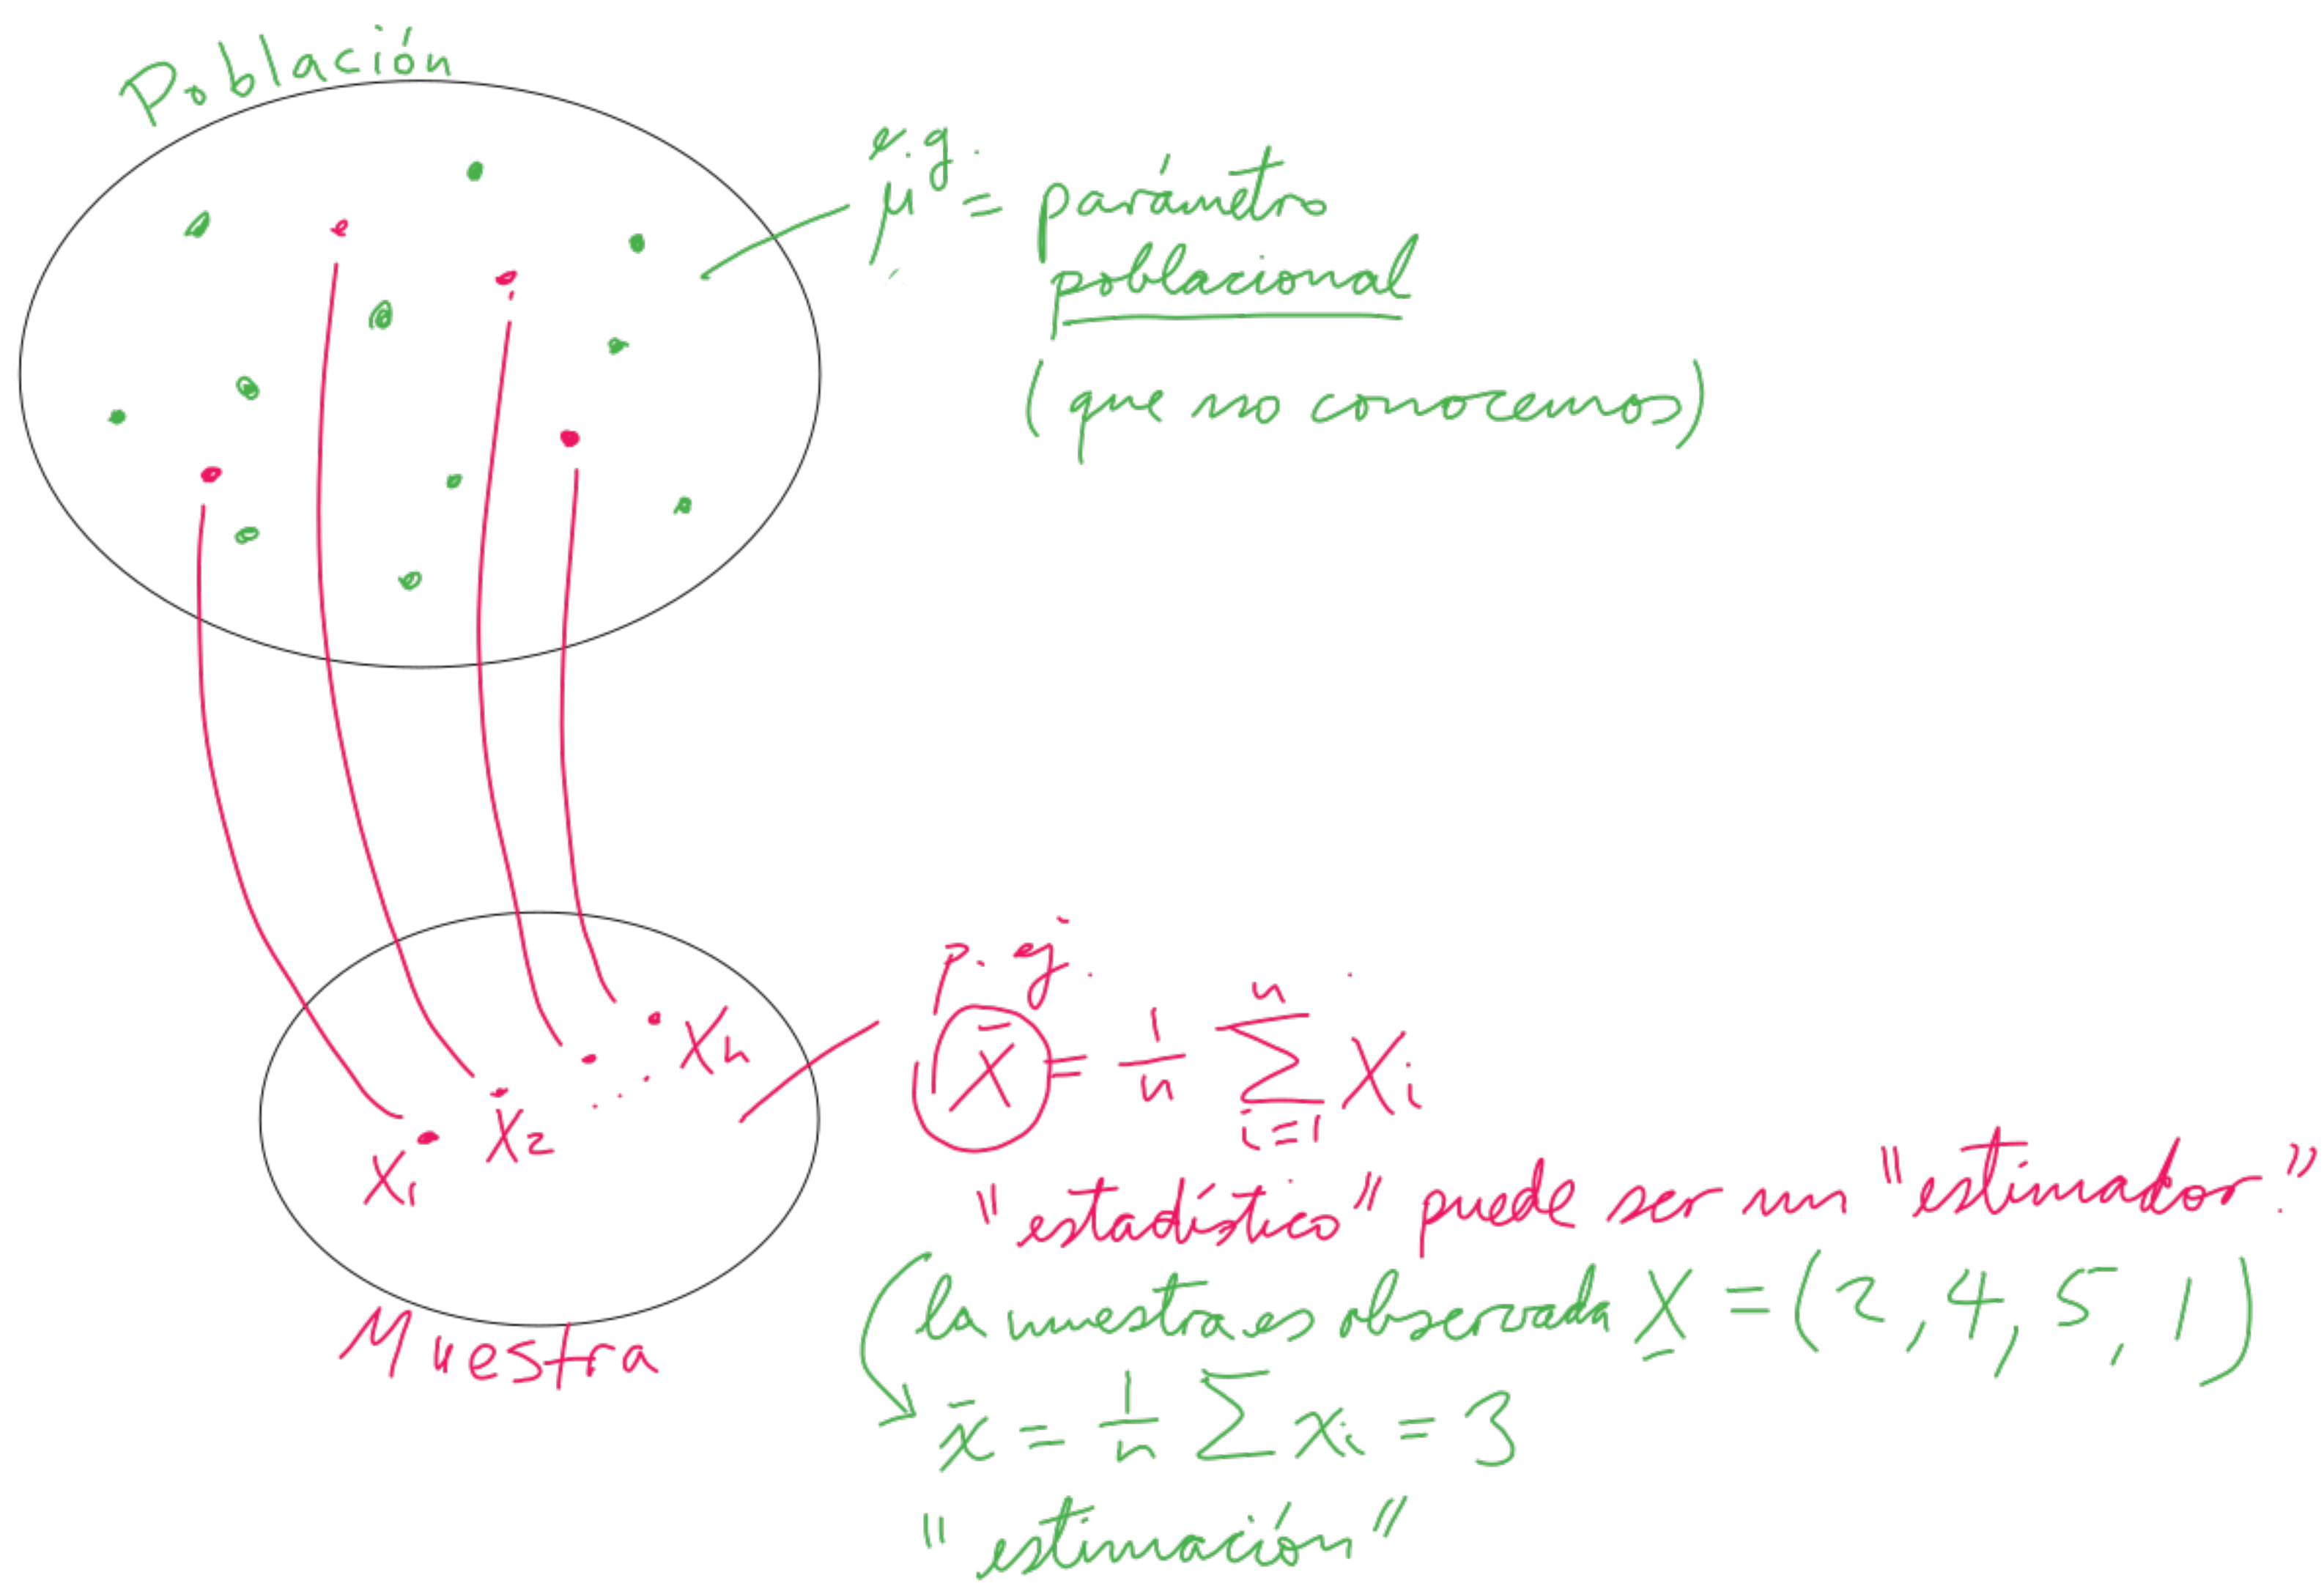 Población
e.g.
μ = parámetro
poblacional
(que no conocemos)
X₁ X₂ ... Xₙ
Muestra
p. ej.
X̄ = 1/n ∑ᵢ₌₁ⁿ Xᵢ
"estadístico" puede ser un "estimador."
la muestra es observada X = (2, 4, 5, 1)
x̄ = 1/n ∑ xᵢ = 3
"estimación"